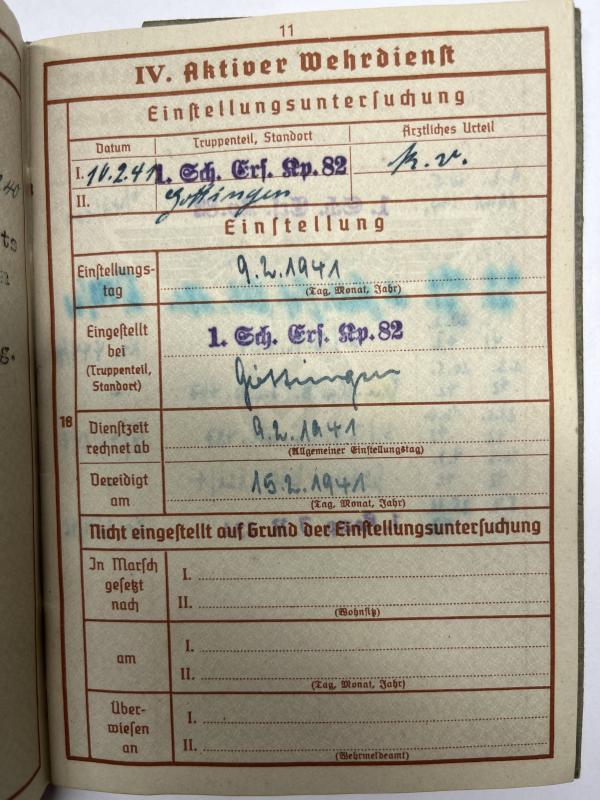 11
IV. Aktiver Wehrdienst
Einstellungsuntersuchung
Datum Truppenteil, Standort Ärztliches Urteil
I. 10.2.41 1. Sch. Ers. Kp. 82 k.v.
II. Göttingen
Einstellung
Einstellungs-
tag
9.2.1941
(Tag, Monat, Jahr)
Eingestellt
bei
(Truppenteil,
Standort)
1. Sch. Ers. Kp. 82
Göttingen
18
Dienstzeit
rechnet ab
9.2.1941
(Allgemeiner Einstellungstag)
Vereidigt
am
15.2.1941
(Tag, Monat, Jahr)
Nicht eingestellt auf Grund der Einstellungsuntersuchung
In Marsch
gesetzt
nach
I.
II.
(Wohnsitz)
am
I.
II.
(Tag, Monat, Jahr)
Über-
wiesen
an
I.
II.
(Wehrmeldeamt)